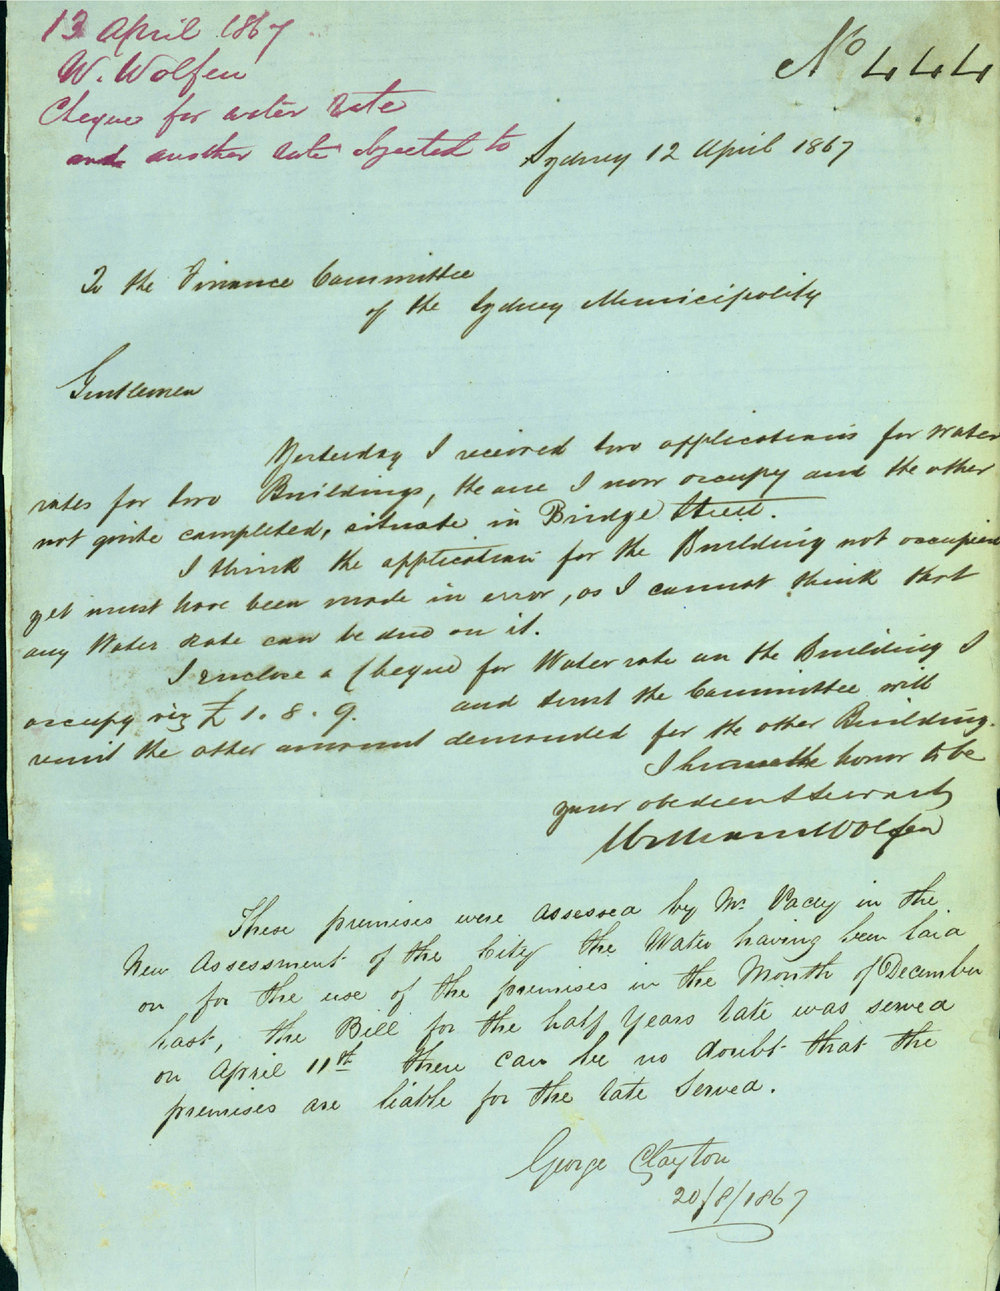 13 April 1867
W. Wolfen
Cheque for water rate
and another rate objected to
No 444
Sydney 12 April 1867
To the Finance Committee
of the Sydney Municipality
Gentlemen
Yesterday I received two applications for water
rates for two Buildings, the one I now occupy and the other
not quite completed, situate in Bridge Street.
I think the application for the Building not occupied
yet must have been made in error, as I cannot think that
any Water Rate can be due on it.
I enclose a Cheque for Water rate on the Building I
occupy viz £1.8.9. and trust the Committee will
remit the other amount demanded for the other Building.
I have the honor to be
your obedient servant
William Wolfen
These premises were assessed by Mr. Pacey in the
New Assessment of the City the Water having been laid
on for the use of the premises in the Month of December
last, the Bill for the half Years rate was served
on April 11th there can be no doubt that the
premises are liable for the rate served.
George Clayton
20/8/1867